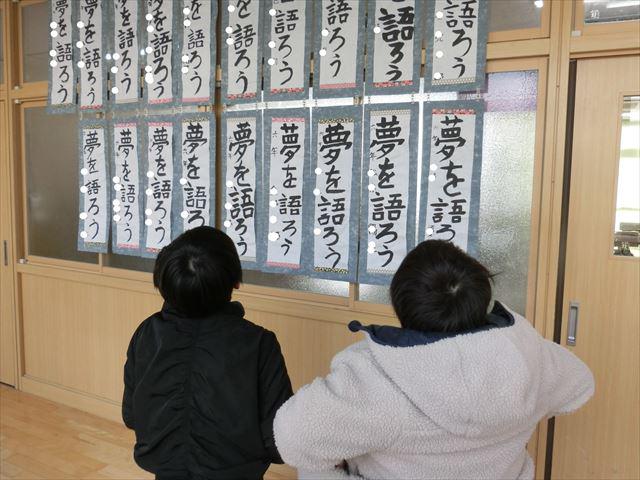 語ろう
語ろう
を語ろう
を語ろう
を語ろう
夢を語ろう
夢を語ろう
夢を語ろう
夢を語ろう
夢を語ろう
夢を語ろ
夢を語ろう
夢を語ろう
夢を語ろう
六年
夢を語ろう
夢を語ろう
夢を語ろう
夢を語ろう
夢を語ろう